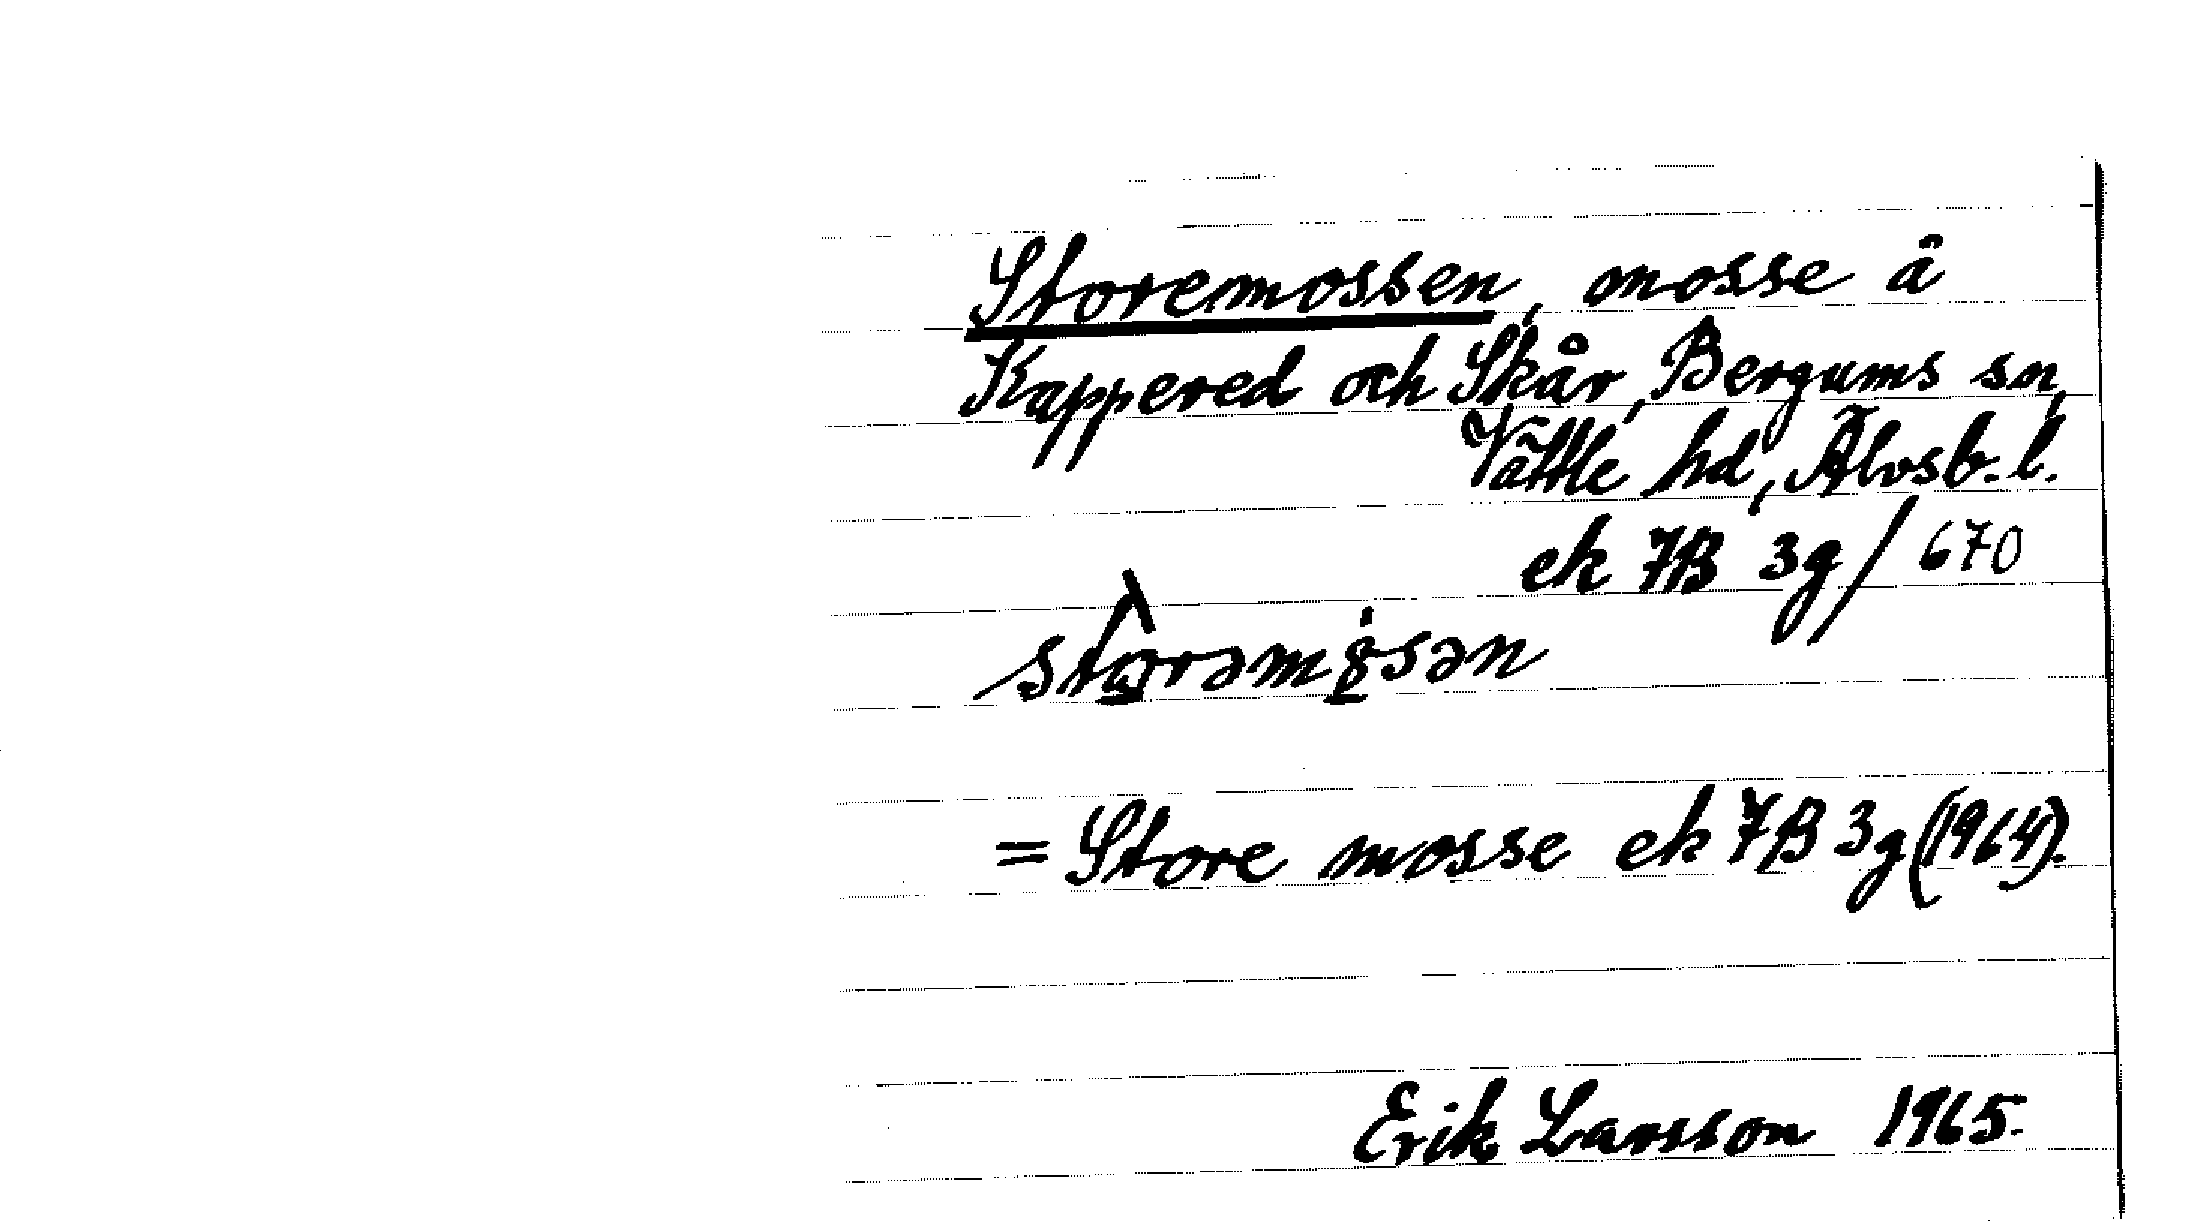 Storemossen, mosse å
Kappered och Skår, Bergums sn,
Vättle hd, Älvsb. l.
ek 7B 3g/670
= Store mosse ek 7B 3g (1964).
Erik Larsson 1965.